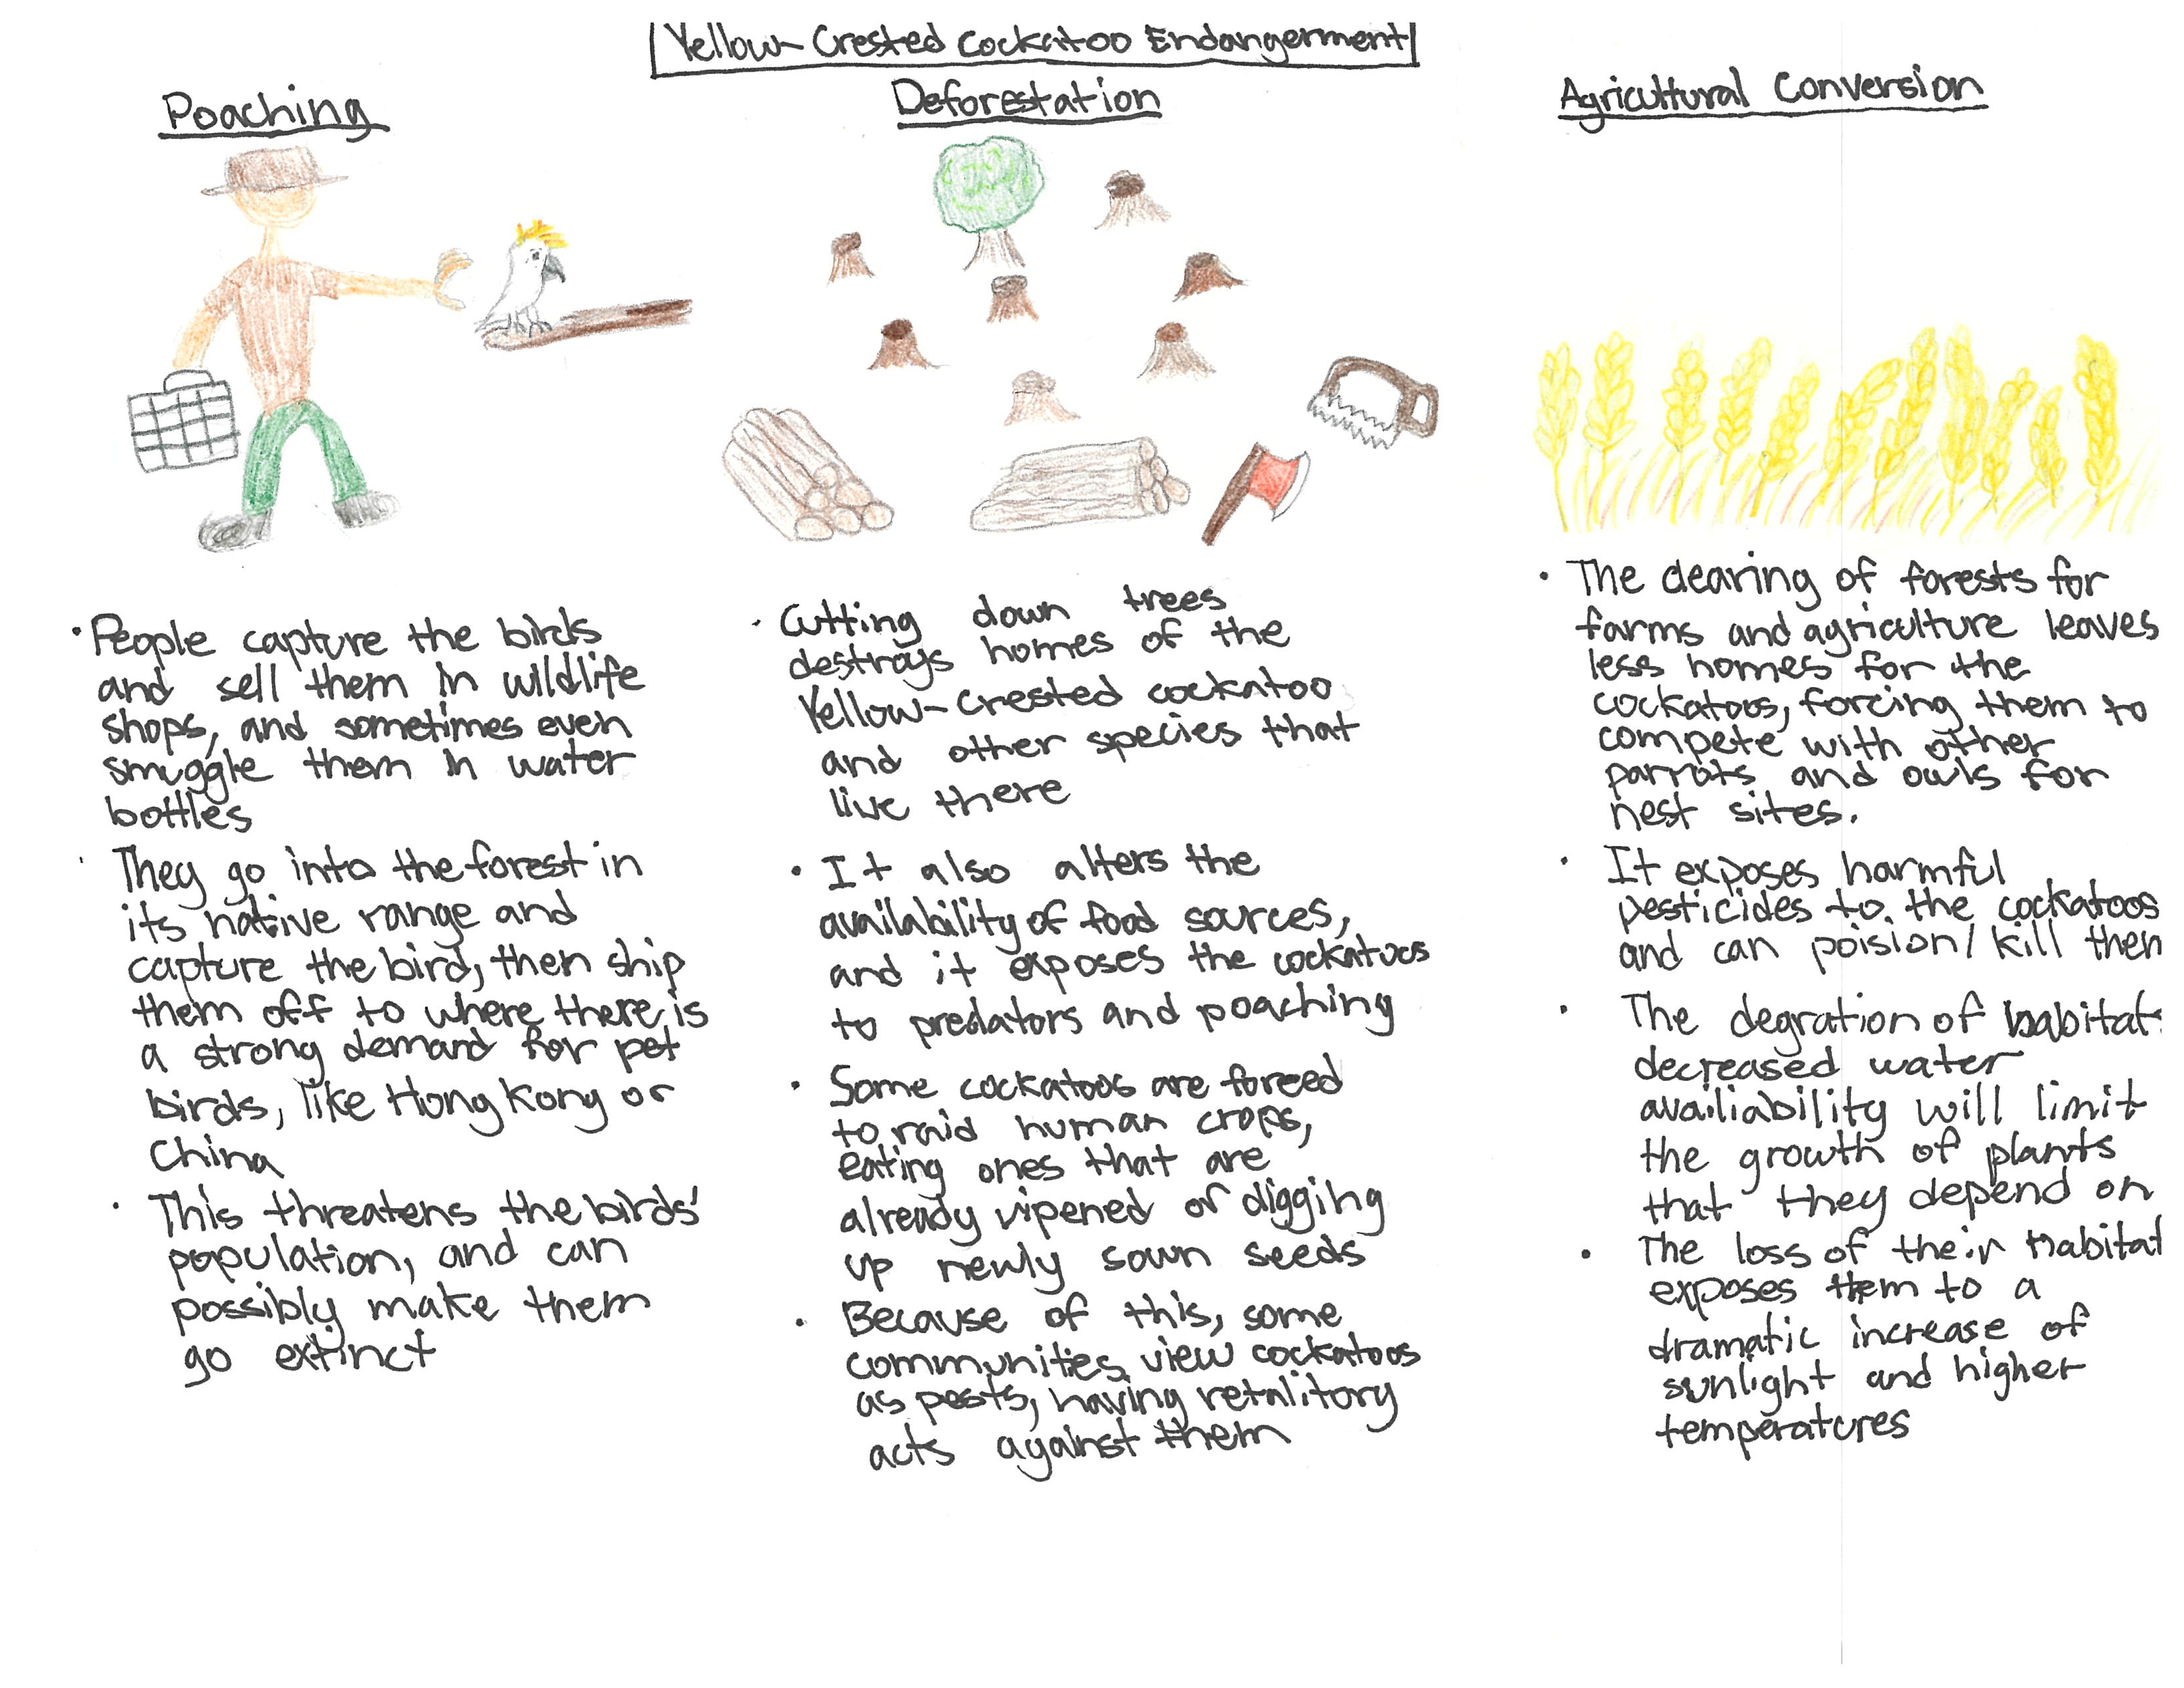 Yellow-Crested Cockatoo Endangerment
Poaching
• People capture the birds
and sell them in wildlife
shops, and sometimes even
smuggle them in water
bottles
• They go into the forest in
its native range and
capture the bird, then ship
them off to where there is
a strong demand for pet
birds, like Hong Kong or
China
• This threatens the birds'
population, and can
possibly make them
go extinct
Deforestation
• Cutting down trees
destroys homes of the
Yellow-Crested cockatoo
and other species that
live there
• It also alters the
availability of food sources,
and it exposes the cockatoos
to predators and poaching
• Some cockatoos are forced
to raid human crops,
eating ones that are
already ripened or digging
up newly sown seeds
• Because of this, some
communities view cockatoos
as pests, having retalitory
acts against them
Agricultural Conversion
• The clearing of forests for
farms and agriculture leaves
less homes for the
cockatoos, forcing them to
compete with other
parrots and owls for
nest sites.
• It exposes harmful
pesticides to the cockatoos
and can poision/kill them
• The degration of habitat
decreased water
availiability will limit
the growth of plants
that they depend on
• The loss of their habitat
exposes them to a
dramatic increase of
sunlight and higher
temperatures